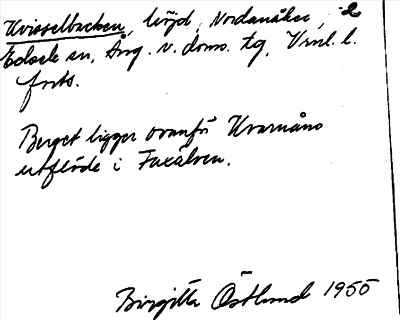 Kvisselbacken, höjd, Nordanåker, 2
Edsele sn, Ång. v. doms. tg, Vrnl. l.
forts.
Berget ligger ovanför Kvarnåns
utflöde i Faxälven.
Birgitta Östlund 1955